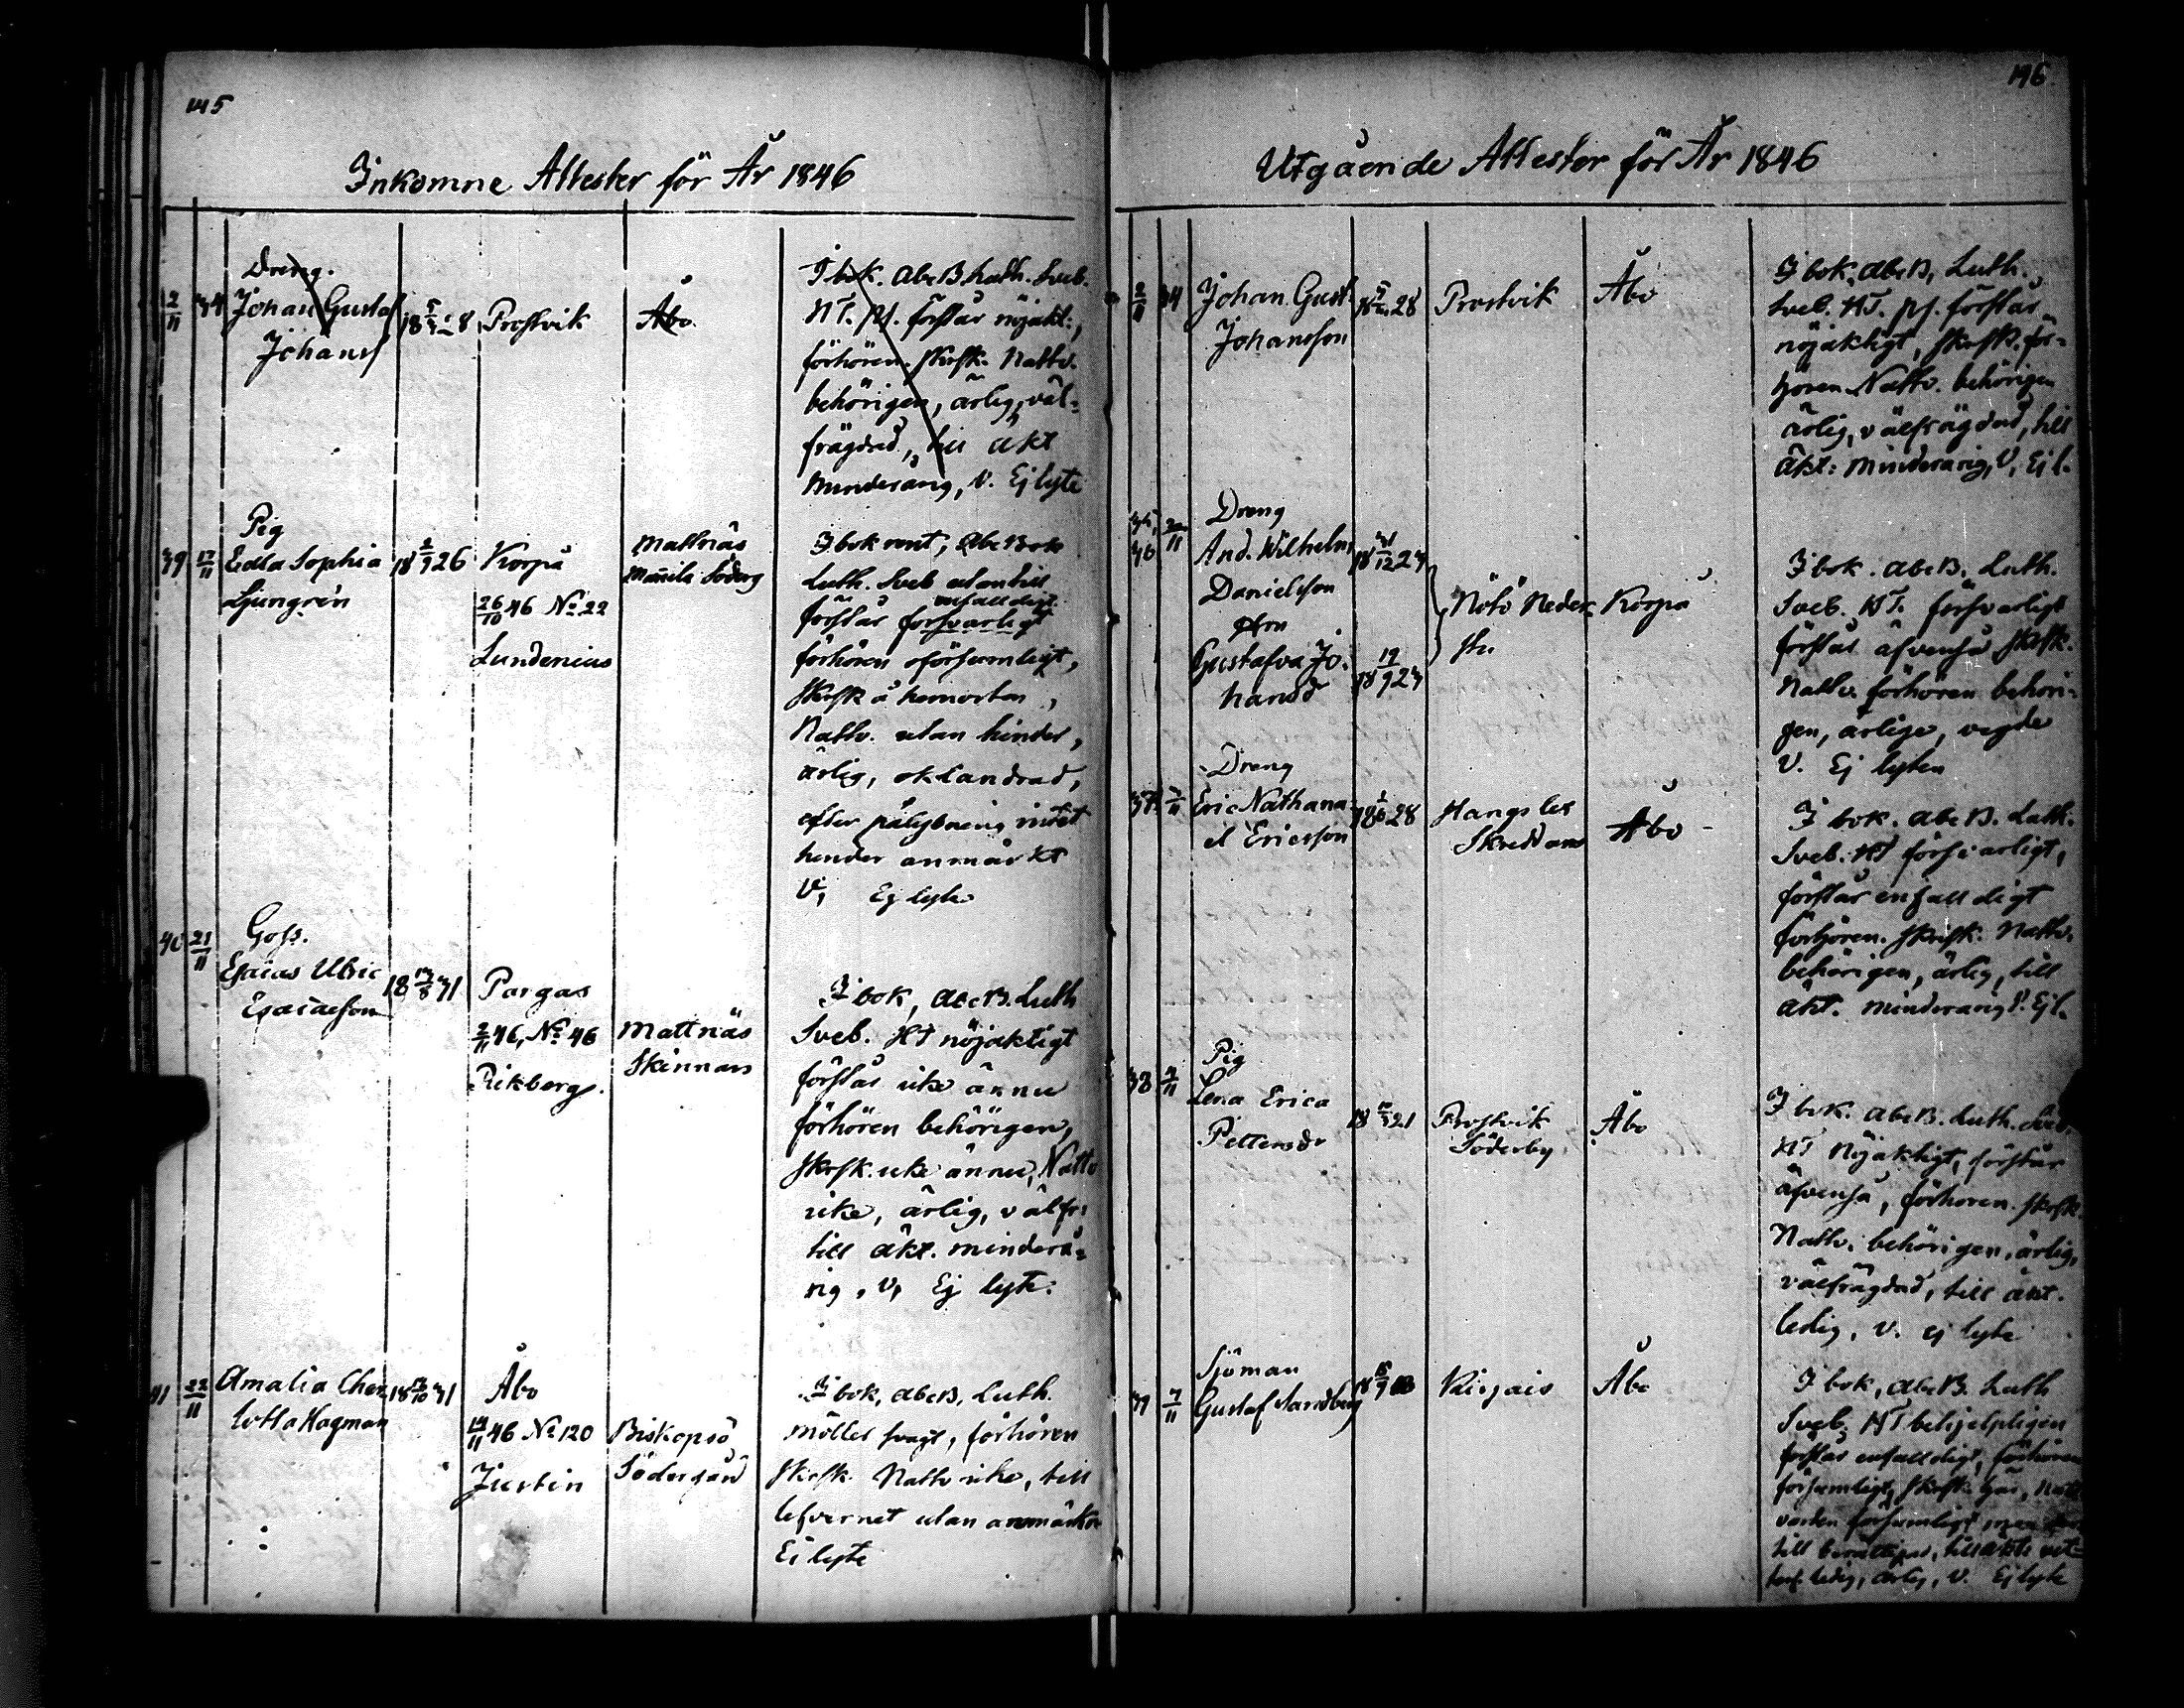 145
Inkomne Attester för År 1846
Dreng.
2/11 34 Johan Gustaf
Johans
Prostvik
Åbo
I bok. AbcB Luth. Sveb.
NT. ps. förstår nöjakt.,
förhören. skrsk. Nattv.
behörigen, ärlig, väl-
frägdad, till äkt
Minderårig, V. Ej lyte
Pig
39 17/11 Edla Sophia
Ljungrén
18 2/9 26
Korpå
26/10 46 No 22
Lundenius
Mattnäs
Söderg
I bok rent, AbcBok
Luth. Sveb utantill
enfalldigt
förstår försvarligt
förhören oförsumligt,
skrsk å hemorten,
Nattv. utan hinder,
ärlig, oklandrad,
efter pålysning intet
hinder anmärkt
V, Ej lyte
40 21/11 Goss.
Esaias Ulric
Esaiaeson
Pargas
2/11 46, No 46
Rikberg.
Mattnäs
Skinnars
I bok, AbcB. Luth
Sveb. NT nöjaktigt
förstår icke ännu
förhören behörigen,
skrsk. icke ännu, Nattv
icke, ärlig, välfr,
till äkt. minderå-
rig, V, Ej lyte.
41 22/11 Amalia Char
lotta Hagman
Åbo
14/11 46 No 120
Justin
Biskopsö
Södergård
I bok, AbcB, Luth.
möller svagt, förhören
skrsk. Nattv icke, till
lefvernet utan anmärkn
Ej lyte
146
Utgående Attester för År 1846
2/11 34 Johan Gust.
Johansson
Prostvik
Åbo
I bok, AbcB, Luth.
Sveb. NT. ps. förstår
nöjaktigt, skrsk. för-
hören Nattv. behörigen
ärlig, välfrägdad, till
äkt: minderårig, V, Ej l.
35, 36
Dreng
And. Wilhelm
Danielsson
Gustafva Jo-
hansd
Nötö Neder-
Korpå
I bok. AbcB. Luth.
Sveb. NT. försvarligt
förstår äfvenså skrsk.
Nattv. förhören behöri-
gen, ärliga, vigde
V. Ej lyten
Dreng
37 7/11 Eric Nathana-
el Ericsson
Skreddars
Åbo
I bok. AbcB. Luth.
Sveb. NT försvarligt,
förstår enfalldigt
förhören. skrsk. Nattv.
behörigen, ärlig, till
äkt. minderårig V. Ej l.
Pig
38 7/11 Lena Erica
Pettersdr
Prostvik
Söderby
Åbo
I bok. AbcB. Luth. Sveb.
NT Nöjaktigt, förstår
äfvenså, förhören. skrsk.
Nattv. behörigen, ärlig,
välfrägdad, till äkt.
ledig, V. ej lyte
Sjöman
39 7/11 Gustaf Sandberg
Kirjais
Åbo
I bok, AbcB. Luth
Sveb, NT behjelpligen
förstår enfalldigt, förhören
försumligt, skrsk. här, Natt-
varden försumligt
till berättigad, till äkta
ledig, ärlig, V. Ej lyte